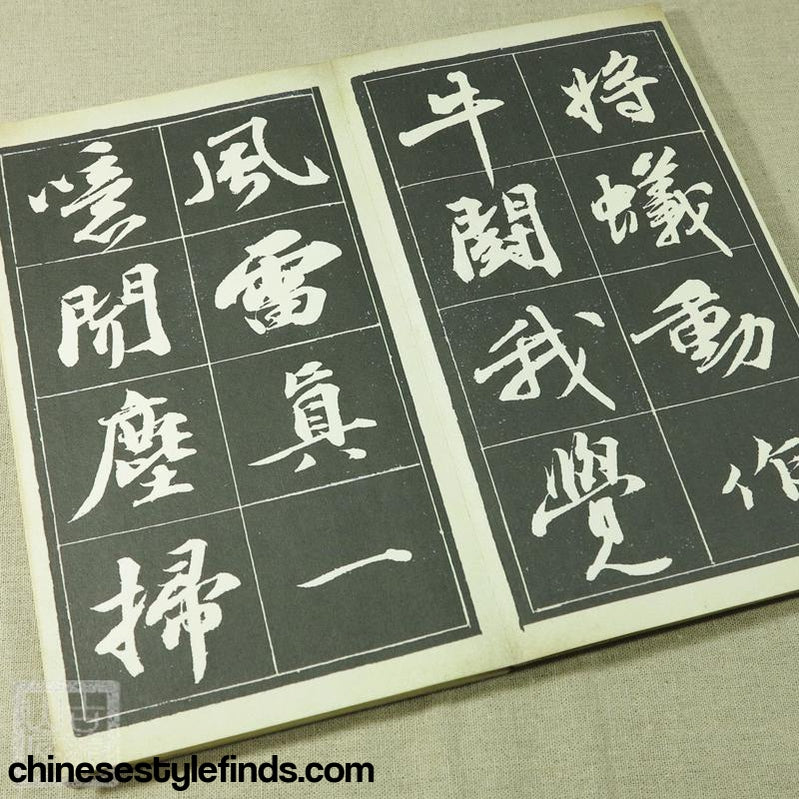 將蟻動作
牛鬪我覺
風雷眞一
噫聞塵掃
chinesestylefinds.com